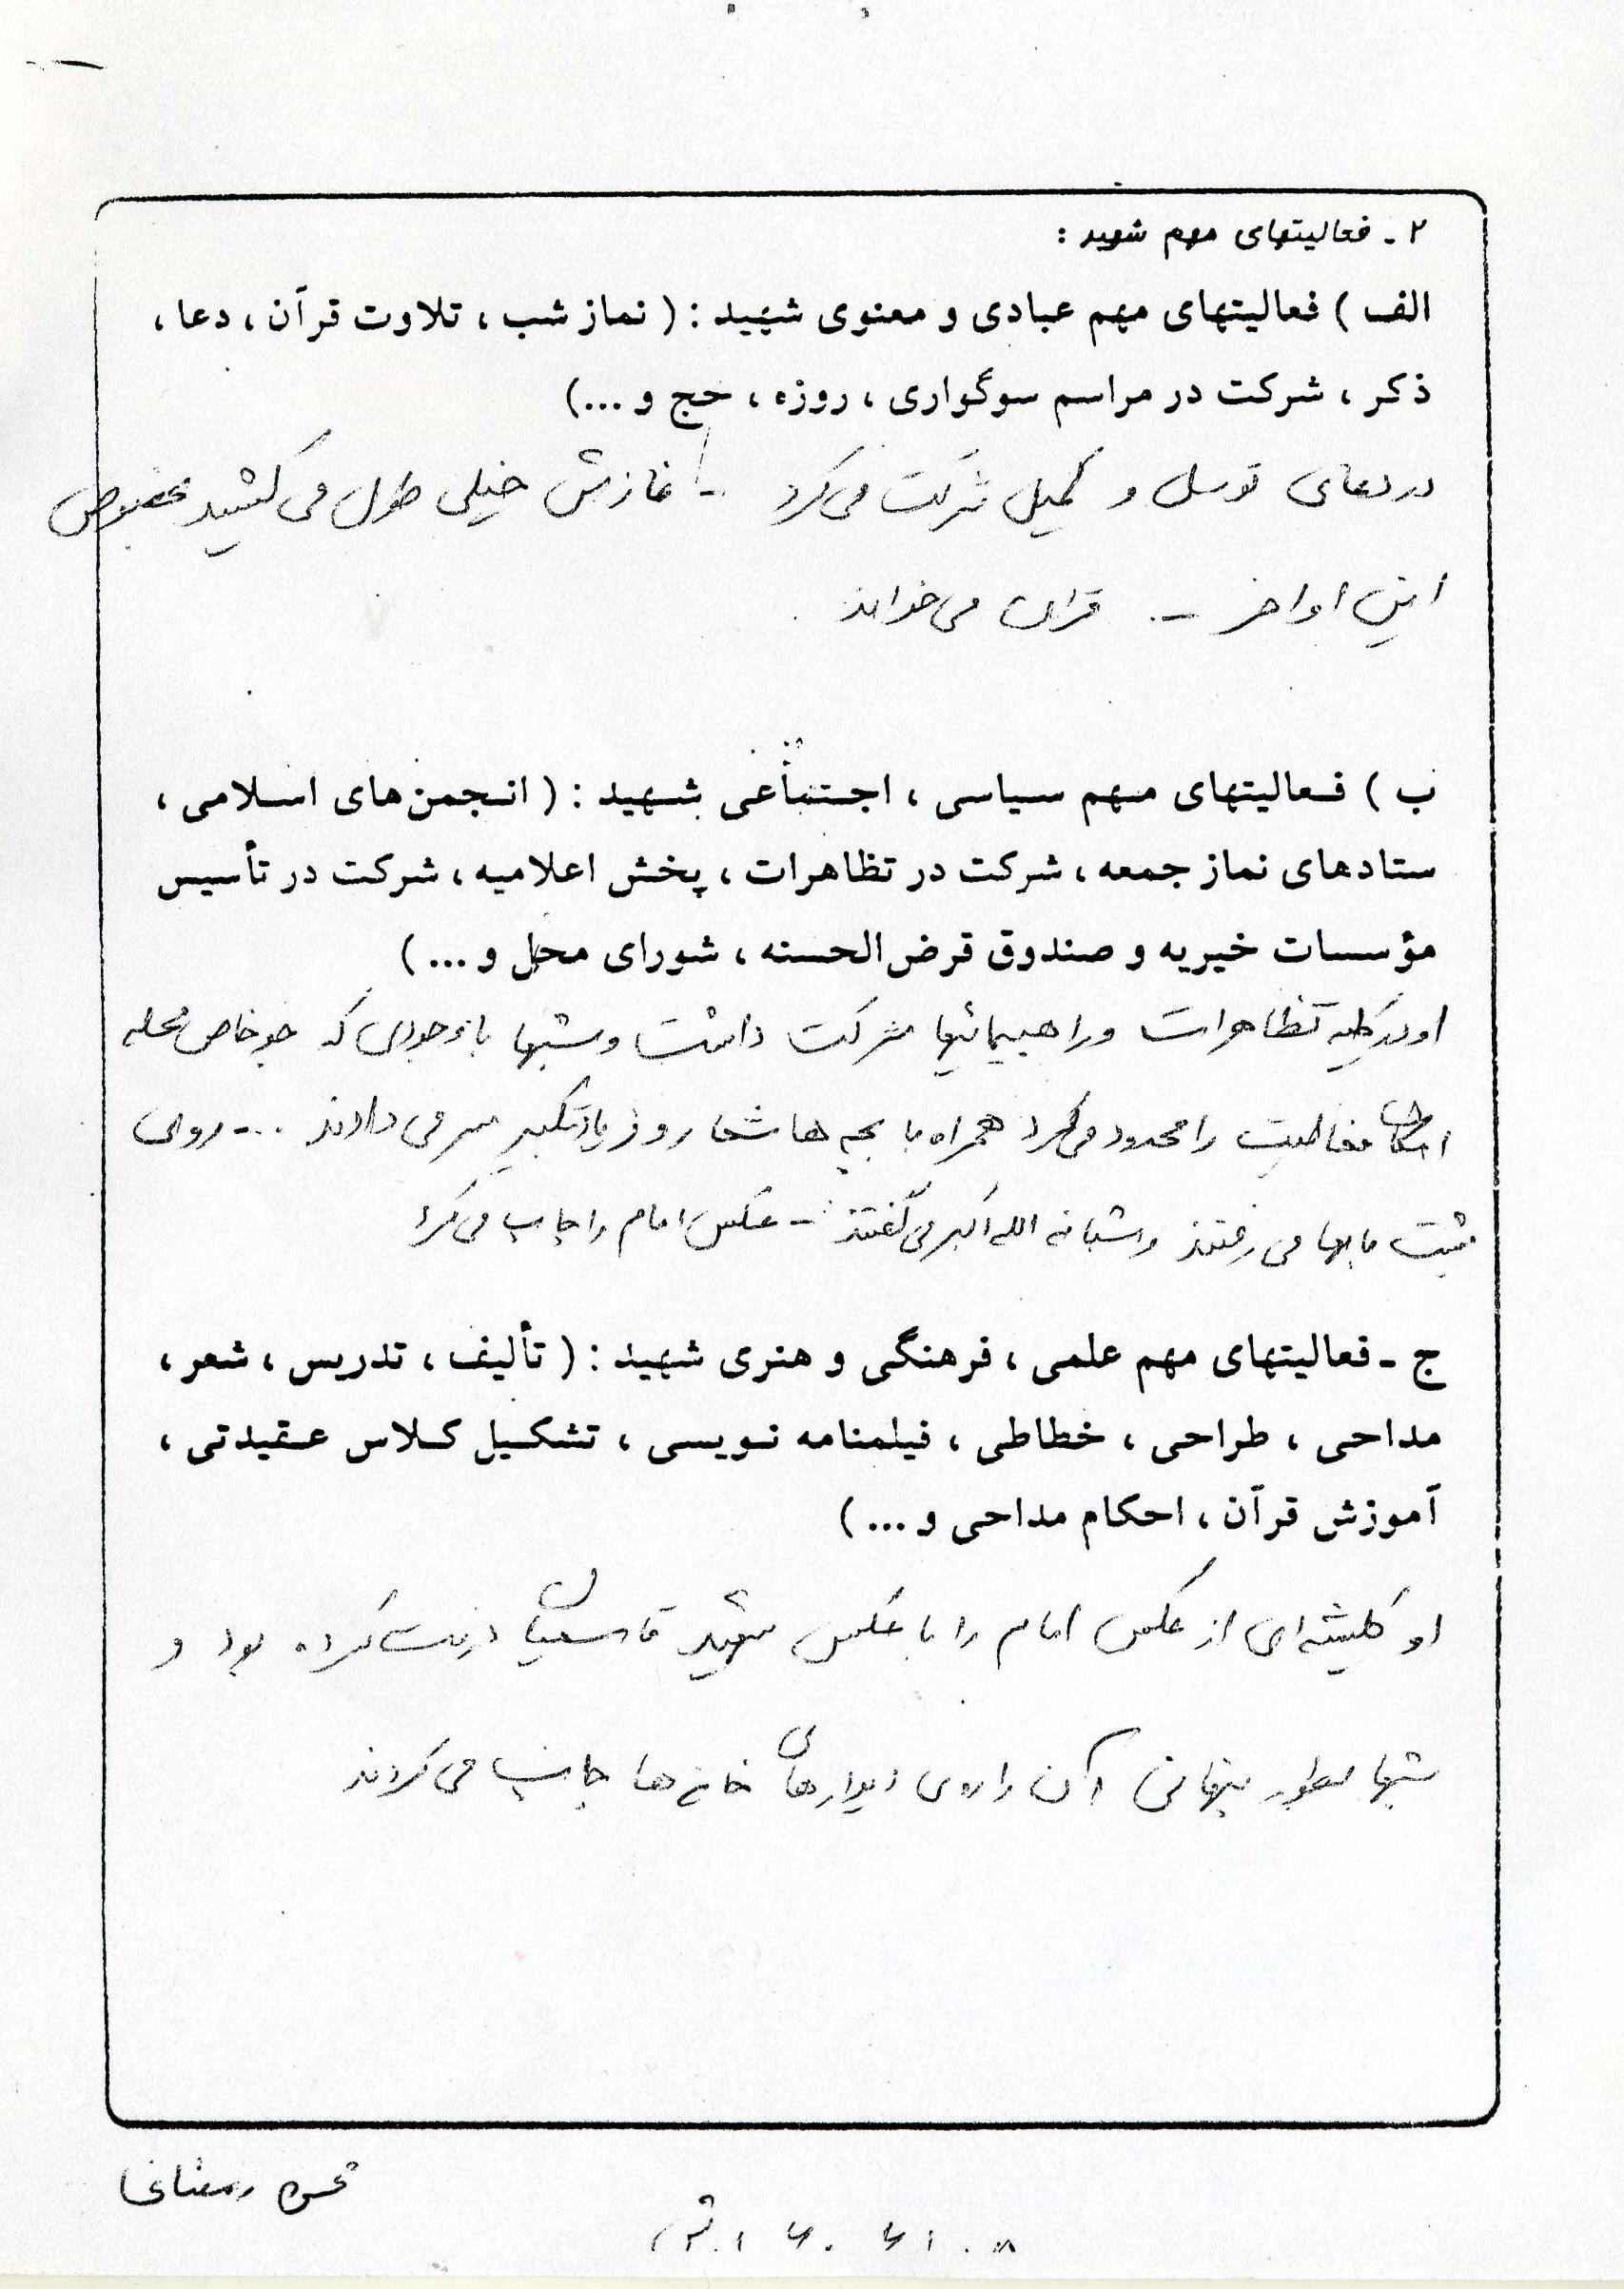 ۲ ـ فعالیتهای مهم شهید :
الف ) فعالیتهای مهم عبادی و معنوی شهید : ( نماز شب ، تلاوت قرآن ، دعا ،
ذکر ، شرکت در مراسم سوگواری ، روزه ، حج و ...)
در دعای توسل و کمیل شرکت می‌کرد - نمازش خیلی طول می‌کشید مخصوص
این اواخر - قران می‌خواند
ب ) فعالیتهای مهم سیاسی ، اجتماعی شهید : ( انجمن‌های اسلامی ،
ستادهای نماز جمعه ، شرکت در تظاهرات ، پخش اعلامیه ، شرکت در تأسیس
مؤسسات خیریه و صندوق قرض‌الحسنه ، شورای محل و ... )
او در کلیه تظاهرات و راهپیمائیها شرکت داشت و شبها باوجودی که جو خاص محله
امکان فعالیت را محدود می‌کرد همراه با بچه ها شعار و فریاد تکبیر سر می دادند - روی
پشت بامها می رفتند و شبانه الله اکبر می گفتند - عکس امام را چاپ می کرد
ج ـ فعالیتهای مهم علمی ، فرهنگی و هنری شهید : ( تألیف ، تدریس ، شعر ،
مداحی ، طراحی ، خطاطی ، فیلمنامه نویسی ، تشکیل کلاس عقیدتی ،
آموزش قرآن ، احکام مداحی و ... )
او کلیشه‌ای از عکس امام را با عکس شهید درست کرده بود و
شبها بطور پنهانی آن را روی دیوارهای خانه ها چاپ می کردند
رمضانی